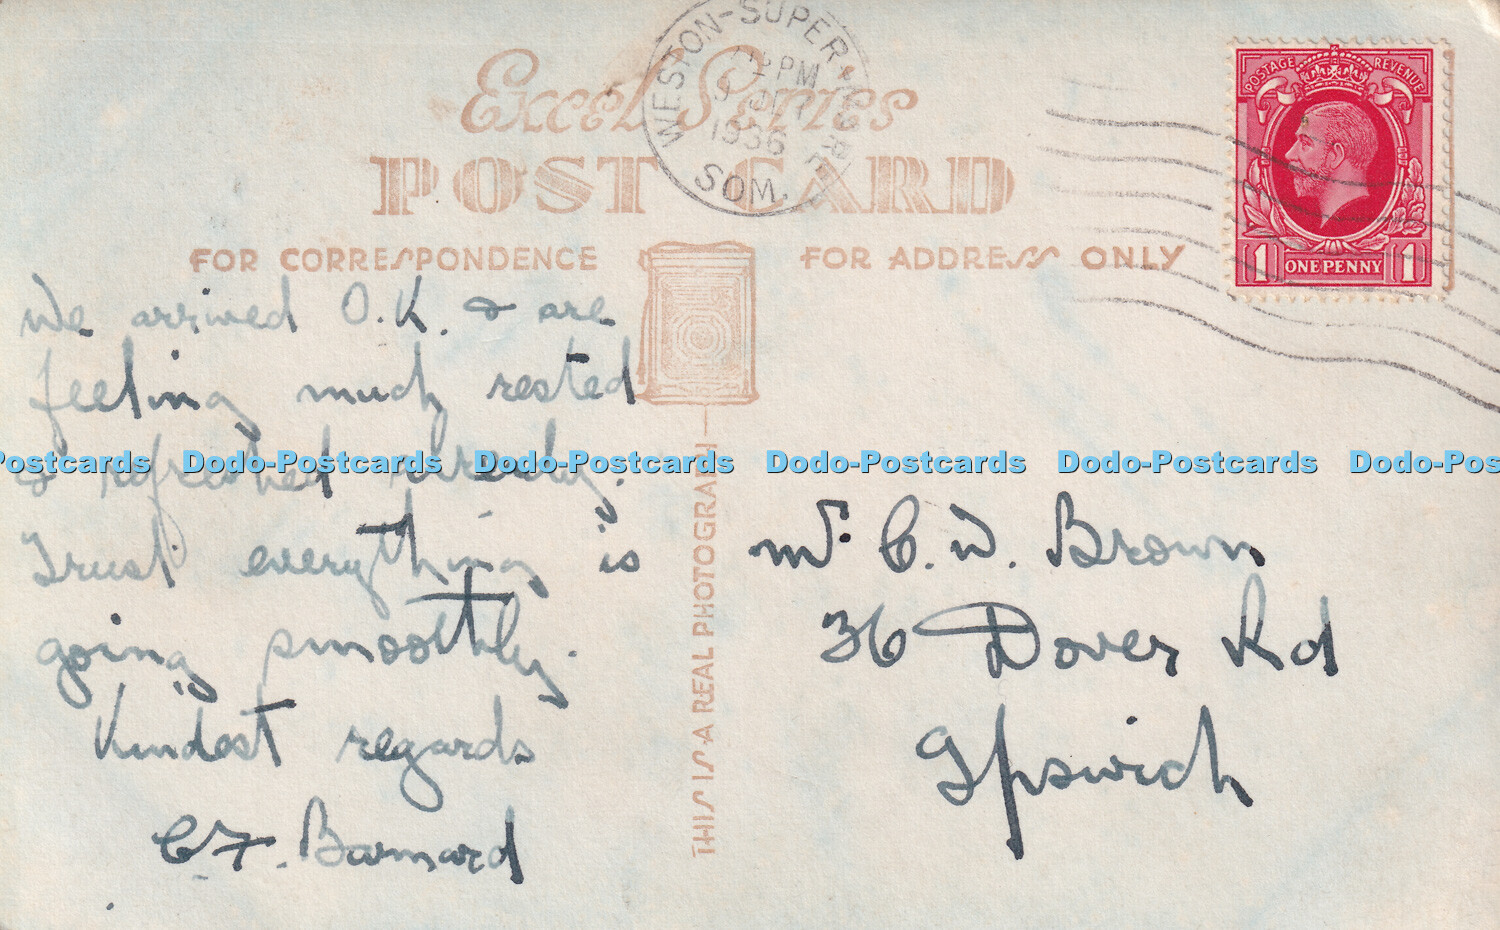 Excel Series
POST CARD
FOR CORRESPONDENCE
FOR ADDRESS ONLY
WESTON-SUPER-MARE
PM
1936
SOM.
POSTAGE REVENUE
1 ONE PENNY 1
We arrived O.K. & are
feeling much rested
& refreshed already.
Trust everything is
going smoothly.
Kindest regards
C.F. Barnard
THIS IS A REAL PHOTOGRAPH
Mr. C. W. Brown
36 Dover Rd
Ipswich
Postcards Dodo-Postcards Dodo-Postcards Dodo-Postcards Dodo-Postcards Dodo-Pos